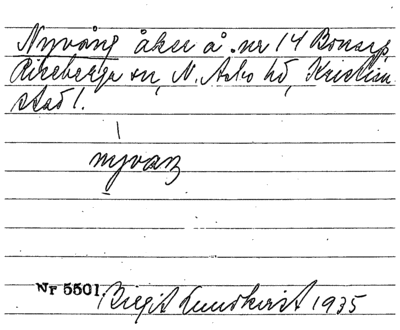 Nyvång åker å nr 14 Bonarp,
Riseberga sn, N. Åsbo hd, Kristian
stad l.
nývaŋ
Nr 5501. Birgit Lundkvist 1935